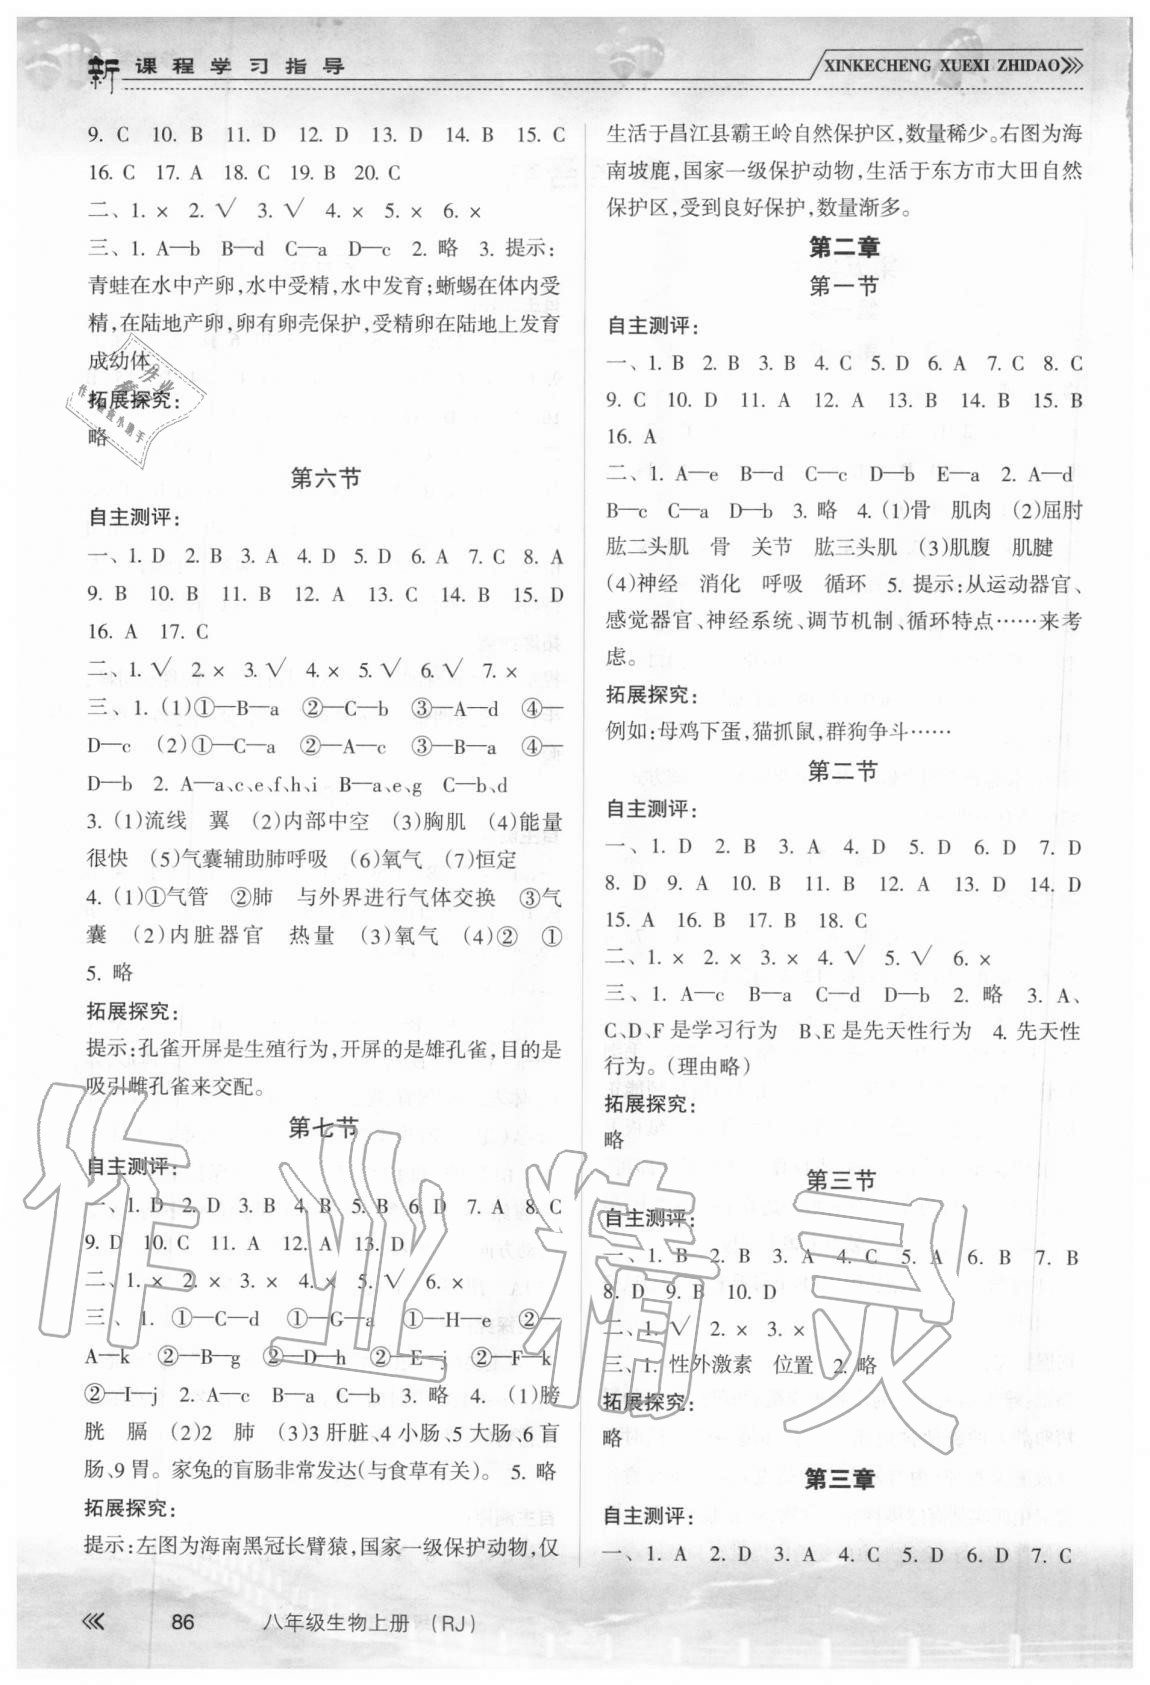 新课程学习指导
XINKECHENG XUEXI ZHIDAO
9. C 10. B 11. D 12. D 13. D 14. B 15. C
16. C 17. A 18. C 19. B 20. C
二、1. × 2. √ 3. √ 4. × 5. × 6. ×
三、1. A—b B—d C—a D—c 2. 略 3. 提示:
青蛙在水中产卵,水中受精,水中发育;蜥蜴在体内受
精,在陆地产卵,卵有卵壳保护,受精卵在陆地上发育
成幼体
拓展探究:
略
第六节
自主测评:
一、1. D 2. B 3. A 4. D 5. D 6. A 7. C 8. A
9. B 10. B 11. B 12. A 13. C 14. B 15. D
16. A 17. C
二、1. √ 2. × 3. √ 4. × 5. √ 6. √ 7. ×
三、1. (1)①—B—a ②—C—b ③—A—d ④—
D—c (2)①—C—a ②—A—c ③—B—a ④—
D—b 2. A—a、c、e、f、h、i B—a、e、g C—b、d
3. (1)流线 翼 (2)内部中空 (3)胸肌 (4)能量
很快 (5)气囊辅助肺呼吸 (6)氧气 (7)恒定
4. (1)①气管 ②肺 与外界进行气体交换 ③气
囊 (2)内脏器官 热量 (3)氧气 (4)② ①
5. 略
拓展探究:
提示:孔雀开屏是生殖行为,开屏的是雄孔雀,目的是
吸引雌孔雀来交配。
第七节
自主测评:
一、1. D 2. D 3. B 4. B 5. B 6. D 7. A 8. C
9. D 10. C 11. A 12. A 13. D
二、1. × 2. × 3. × 4. × 5. √ 6. ×
三、1. ①—C—d ①—G—a ①—H—e ②—
A—k ②—B—g ②—D—h ②—E—j ②—F—k
②—I—j 2. A—c B—a C—b 3. 略 4. (1)膀
胱 膈 (2)2 肺 (3)3 肝脏、4 小肠、5 大肠、6 盲
肠、9 胃。家兔的盲肠非常发达(与食草有关)。 5. 略
拓展探究:
提示:左图为海南黑冠长臂猿,国家一级保护动物,仅
生活于昌江县霸王岭自然保护区,数量稀少。右图为海
南坡鹿,国家一级保护动物,生活于东方市大田自然
保护区,受到良好保护,数量渐多。
第二章
第一节
自主测评:
一、1. B 2. B 3. B 4. C 5. D 6. A 7. C 8. C
9. C 10. D 11. A 12. A 13. B 14. B 15. B
16. A
二、1. A—e B—d C—c D—b E—a 2. A—d
B—c C—a D—b 3. 略 4. (1)骨 肌肉 (2)屈肘
肱二头肌 骨 关节 肱三头肌 (3)肌腹 肌腱
(4)神经 消化 呼吸 循环 5. 提示:从运动器官、
感觉器官、神经系统、调节机制、循环特点……来考
虑。
拓展探究:
例如:母鸡下蛋,猫抓鼠,群狗争斗……
第二节
自主测评:
一、1. D 2. B 3. A 4. D 5. D 6. D 7. D
8. D 9. A 10. B 11. B 12. A 13. D 14. D
15. A 16. B 17. B 18. C
二、1. × 2. × 3. × 4. √ 5. √ 6. ×
三、1. A—c B—a C—d D—b 2. 略 3. A、
C、D、F 是学习行为 B、E 是先天性行为 4. 先天性
行为。(理由略)
拓展探究:
略
第三节
自主测评:
一、1. B 2. B 3. A 4. C 5. A 6. B 7. B
8. D 9. B 10. D
二、1. √ 2. × 3. ×
三、1. 性外激素 位置 2. 略
拓展探究:
略
第三章
自主测评:
一、1. A 2. D 3. A 4. C 5. D 6. D 7. C
86 八年级生物上册 (RJ)
作业精灵